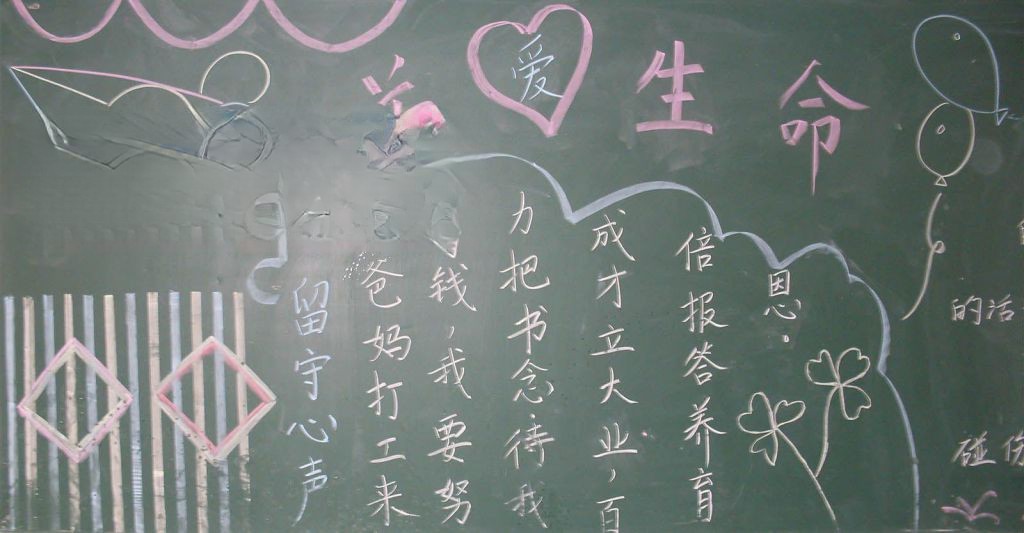 爱生命
留守心声
爸妈打工来
钱，我要努
力把书念待我
成才立大业，百
倍报答养育
恩。
的活
碰伤